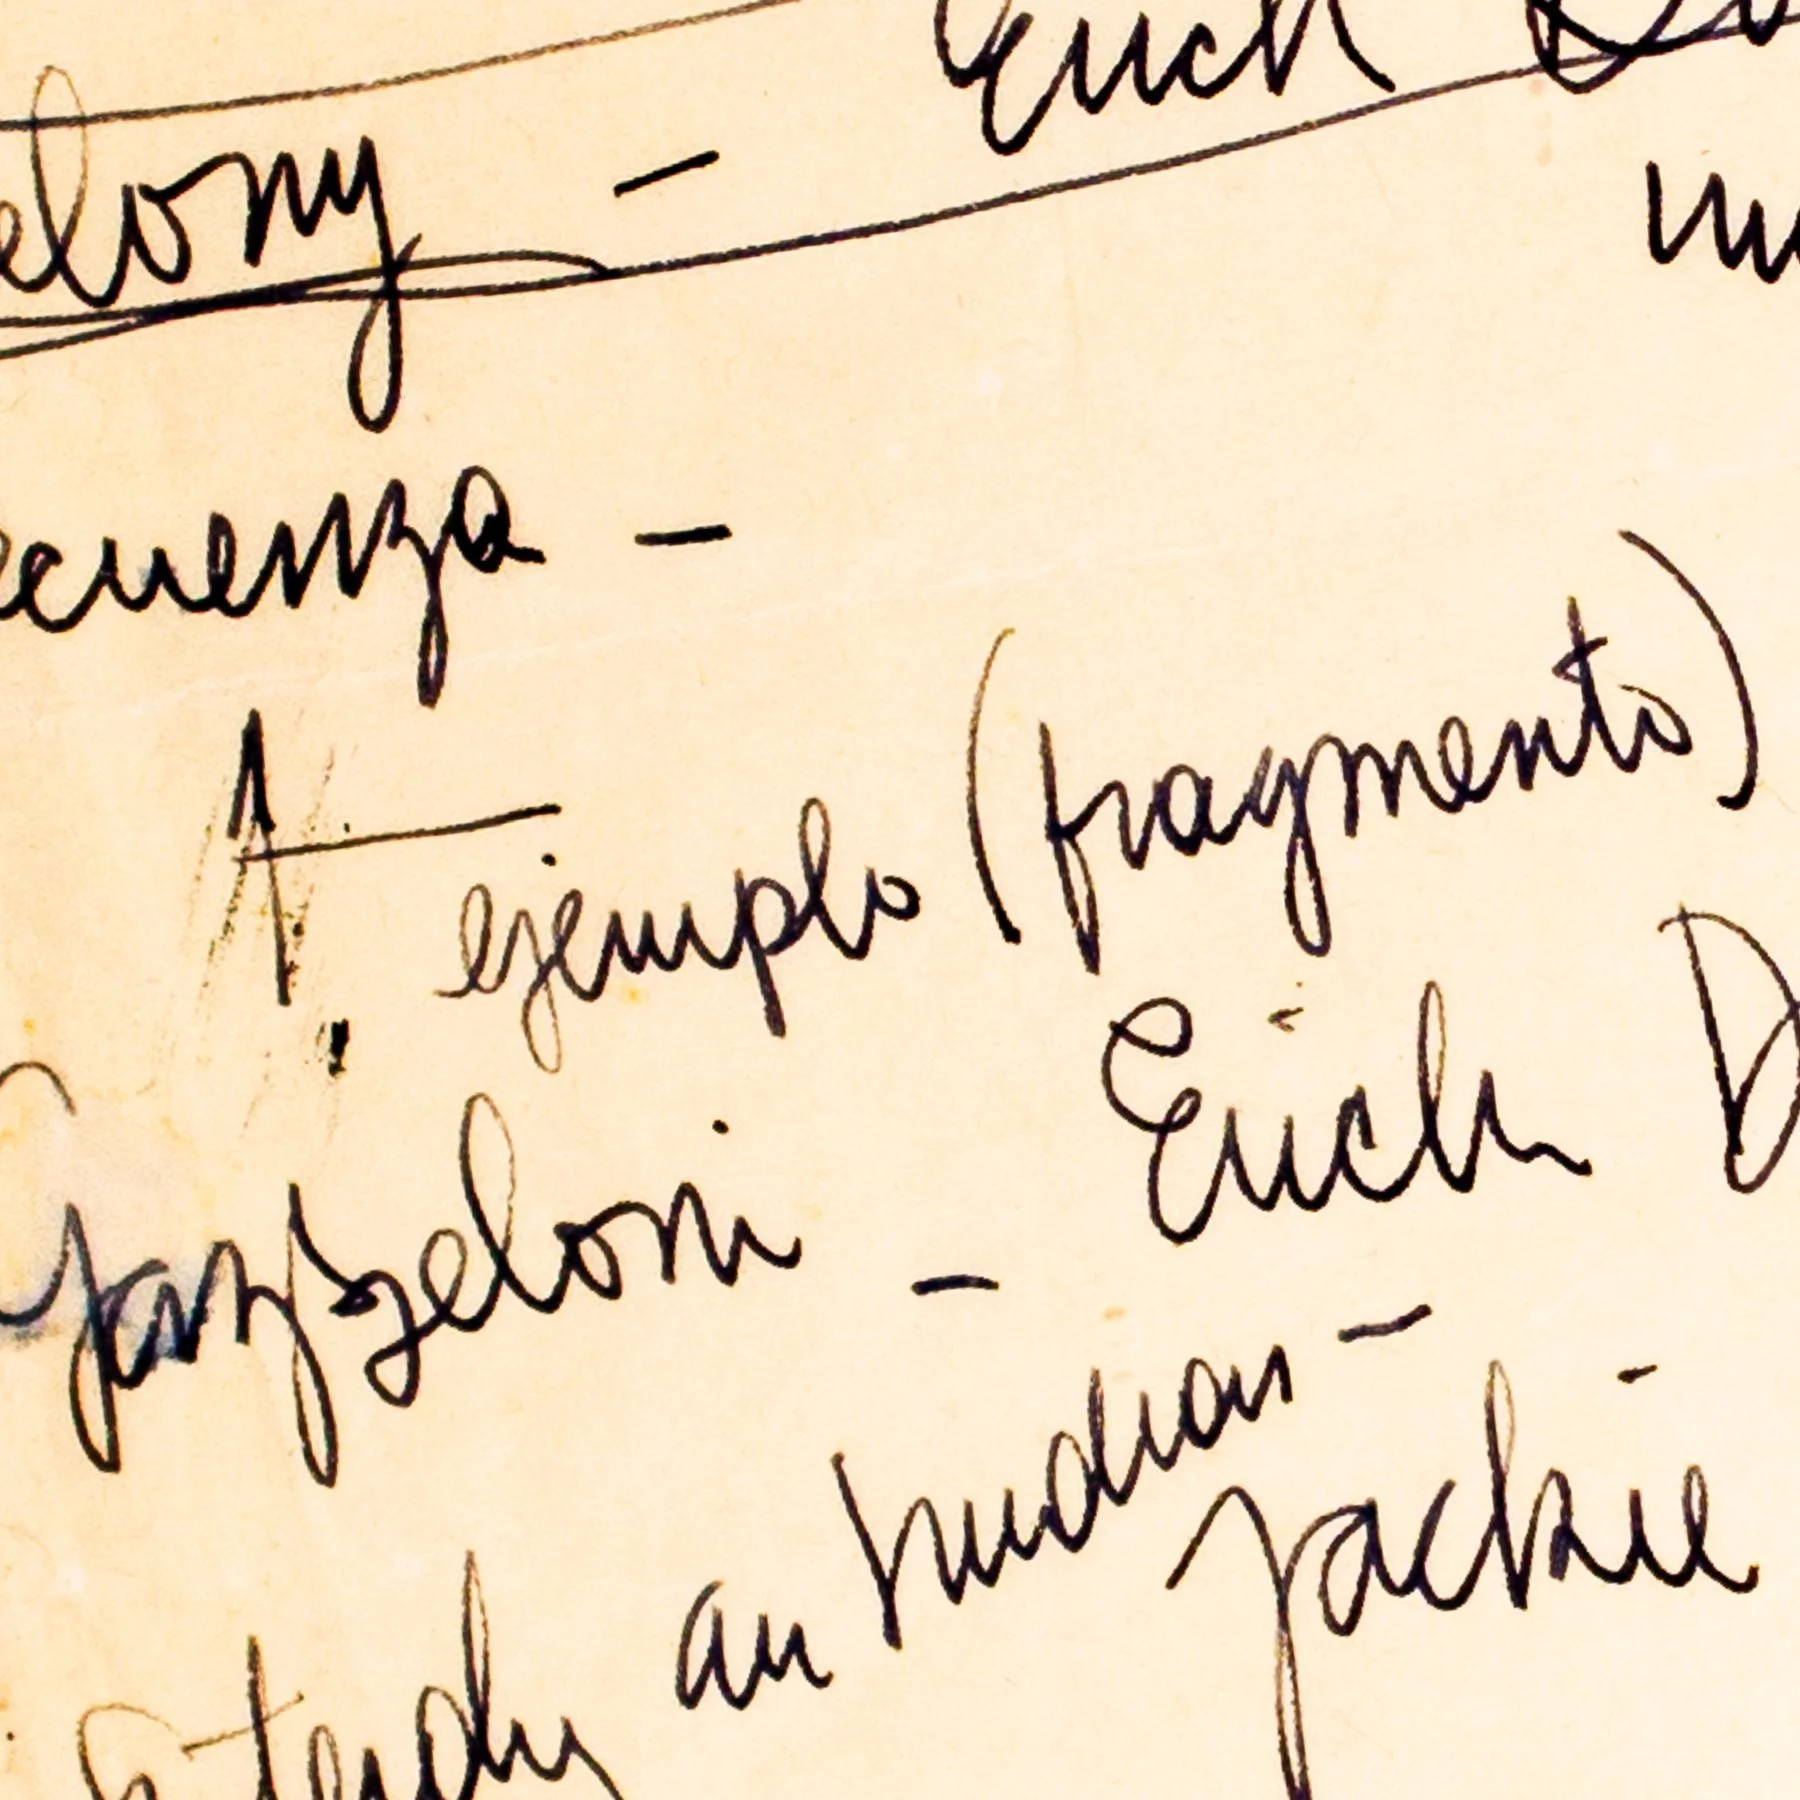 elony - Erich
ecuenza -
1 ejemplo (fragmento)
Gazzeloni - Erich D
Steady au - Jackie